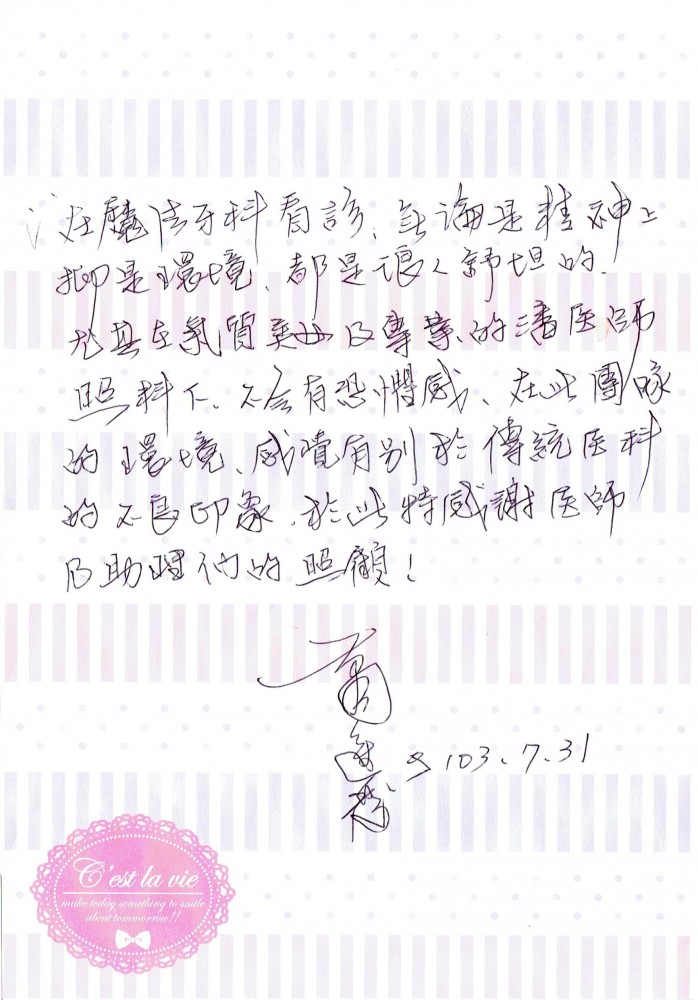 在魔法牙科看診、無論是精神上
抑是環境、都是讓人舒坦的.
尤其在氣質 及專業的潘医師
照料下、不会有恐懼感、在此團隊
的環境、感覺有別於傳統医科
的不良印象、於此特感謝医師
及助理们的照顧!
103.7.31
C'est la vie
make today something to smile
about tommorrow!!